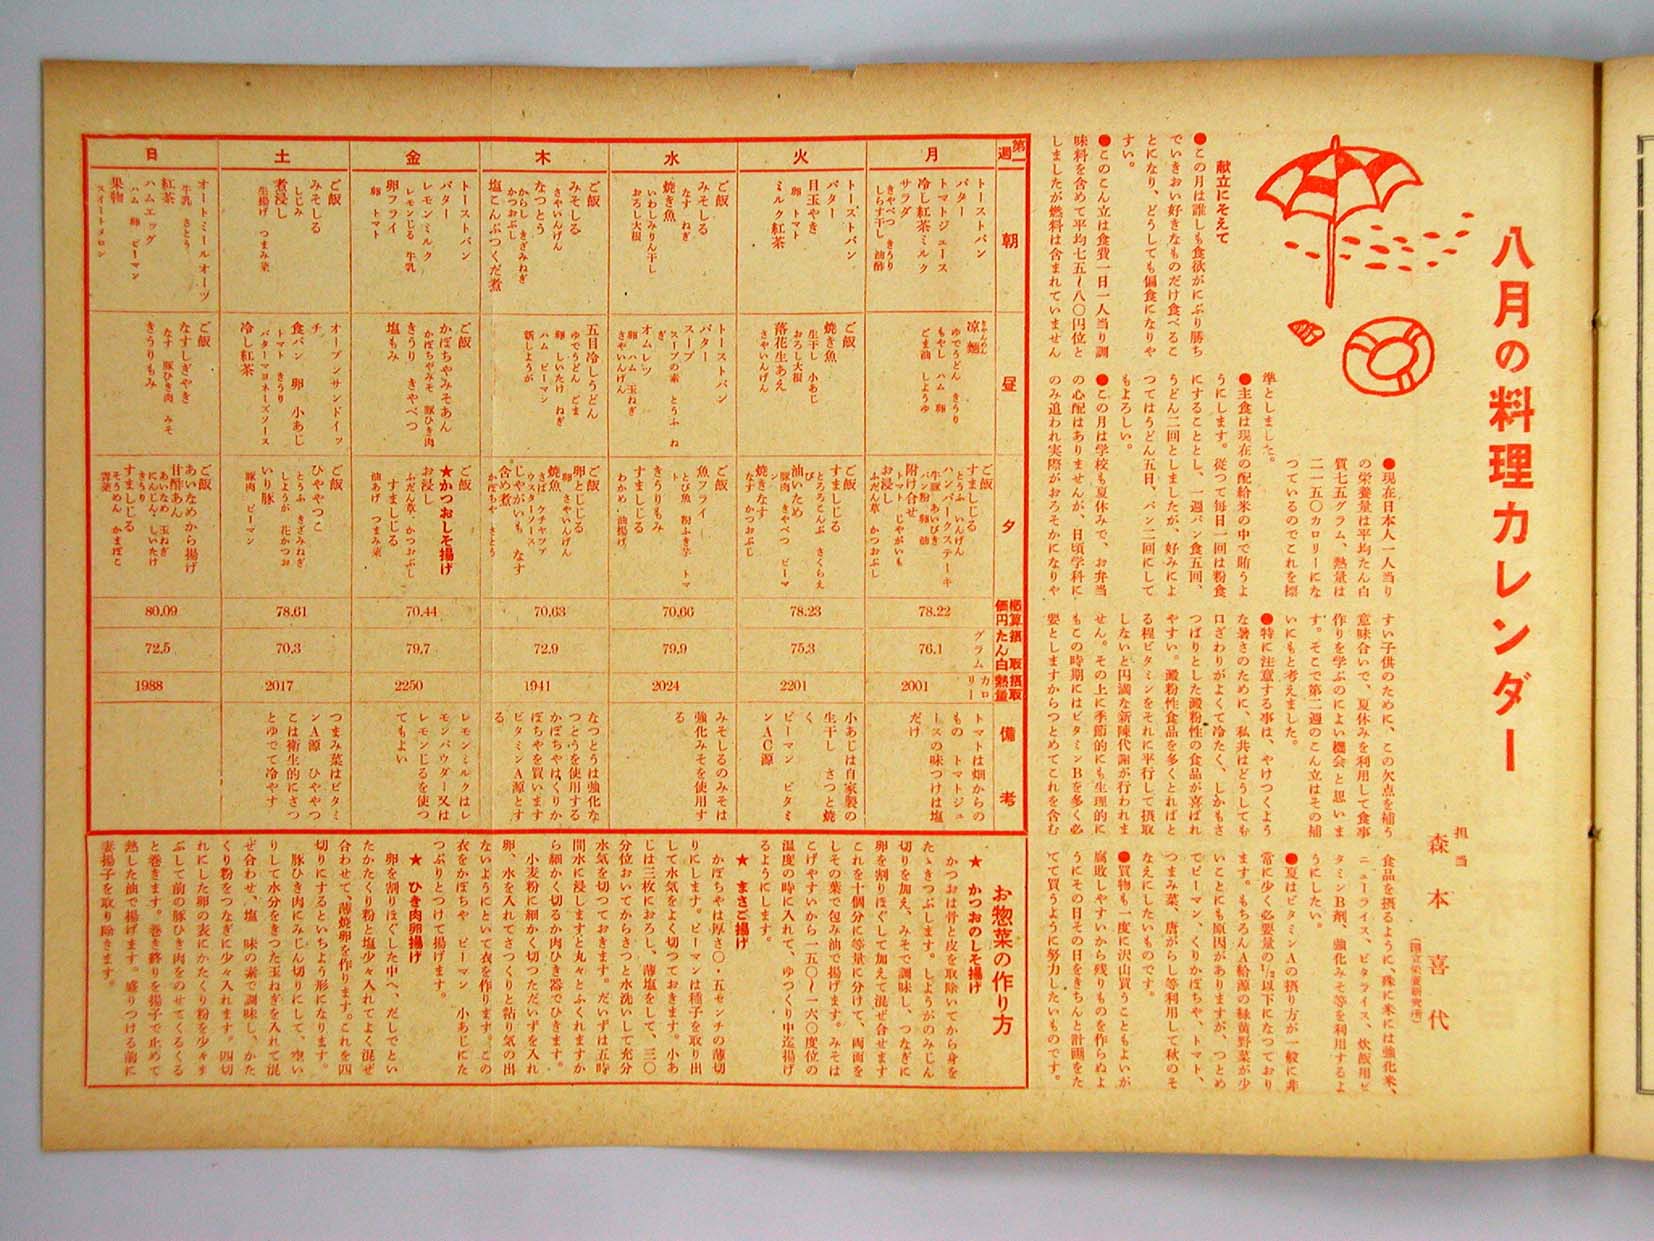 八月の料理カレンダー
担当
森本喜代
(国立栄養研究所)
献立にそえて
●この月は誰しも食欲がにぶり勝ち
でいきおい好きなものだけ食べるこ
とになり、どうしても偏食になりや
すい。
●このこん立は食費一日一人当り調
味料を含めて平均七五~八〇円位と
しましたが燃料は含まれていません
●現在日本人一人当り
の栄養量は平均たん白
質七五グラム、熱量は
二一五〇カロリーにな
つているのでこれを標
準としました。
●主食は現在の配給米の中で賄うよ
うにします。従つて毎日一回は粉食
にすることとし、一週パン食五回、
うどん二回としましたが、好みによ
つてはうどん五日、パン二回にして
もよろしい。
●この月は学校も夏休みで、お弁当
の心配はありませんが、日頃学科に
のみ追われ実際がおろそかになりや
すい子供のために、この欠点を補う
意味合いで、夏休みを利用して食事
作りを学ぶのによい機会と思いま
す。そこで第二週のこん立はその補
いにもと考えました。
●特に注意する事は、やけつくよう
な暑さのために、私共はどうしても
口ざわりがよくて冷たく、しかもさ
つぱりとした澱粉性の食品が喜ばれ
やすい。澱粉性食品を多くとればと
る程ビタミンをそれに平行して摂取
しないと円満な新陳代謝が行われま
せん。その上に季節的にも生理的に
もこの時期にはビタミンBを多く必
要としますからつとめてこれを含む
食品を摂るように、殊に米には強化米、
ニューライス、ビタライス、炊飯用ビ
タミンB剤、強化みそ等を利用するよ
うにしたい。
●夏はビタミンAの摂り方が一般に非
常に少く必要量の1/2以下になつており
ます。もちろんA給源の緑黄野菜が少
いことにも原因がありますが、つとめ
てピーマン、くりかぼちや、トマト、
つまみ菜、唐がらし等利用して秋のそ
なえにしたいものです。
●買物も一度に沢山買うこともよいが
腐敗しやすいから残りものを作らぬよ
うにその日その日をきちんと計画をた
てて買うように努力したいものです。
第一週
朝
昼
夕
概算価円
摂取たん白グラム
摂取熱量カロリー
備考
月
トーストパン
バター
トマトジュース
冷し紅茶ミルク
サラダ
きやべつ きうり
しらす干し 油酢
涼麺
ゆでうどん きうり
もやし ハム 卵
ごま油 しようゆ
ご飯
すましじる
とうふ いんげん
ハンバークステーキ
牛豚あいびき
パン粉 卵 油
附け合せ
トマト じやがいも
お浸し
ふだん草 かつおぶし
78.22
76.1
2001
トマトは畑からの
もの トマトジュ
ースの味つけは塩
だけ
火
トーストパン
バター
目玉やき
卵 トマト
ミルク紅茶
ご飯
焼き魚
生干し 小あじ
おろし大根
落花生あえ
さやいんげん
ご飯
すましじる
とろろこんぶ さくらえ
び
油いため
豚肉 きやべつ ピーマ
ン
焼きなす
なす かつおぶし
78.23
75.3
2201
小あじは自家製の
生干し さつと焼
く
ピーマン ビタミ
ンAC源
水
ご飯
みそしる
なす ねぎ
焼き魚
いわしみりん干し
おろし大根
トーストパン
バター
スープ
スープの素 とうふ ね
ぎ
オムレツ
卵 ハム 玉ねぎ
さやいんげん
ご飯
魚フライ
とび魚 粉ふき芋 トマ
ト
きうりもみ
すましじる
わかめ・油揚げ
70.66
79.9
2024
みそしるのみそは
強化みそを使用す
る
木
ご飯
みそしる
さやいんげん
なつとう
からし きざみねぎ
かつおぶし
塩こんぶつくだ煮
五目冷しうどん
ゆでうどん ごま
卵 しいたけ ねぎ
ハム ピーマン
新しようが
ご飯
卵とじじる
卵 さやいんげん
焼魚
さば ケチャップ
ウスターソース
じやがいも なす
含め煮
かぼちや さとう
70.63
72.9
1941
なつとうは強化な
つとうを使用する
かぼちやはくりか
ぼちやを買います
ビタミンA源とす
る
金
トーストパン
バター
レモンミルク
レモンじる 牛乳
卵フライ
卵 トマト
ご飯
かぼちやみそあん
かぼちやみそ 豚ひき肉
きうり きやべつ
塩もみ
ご飯
★かつおしそ揚げ
お浸し
ふだん草、かつおぶし
すましじる
油あげ つまみ菜
70.44
79.7
2250
レモンミルクはレ
モンパウダー又は
レモンじるを使つ
てもよい
土
ご飯
みそしる
しじみ
煮浸し
生揚げ つまみ菜
オープンサンドイッ
チ
食パン 卵 小あじ
トマト きうり
バターマヨネーズソース
冷し紅茶
ご飯
ひややつこ
とうふ きざみねぎ
しようが 花かつお
いり豚
豚肉 ピーマン
78.61
70.3
2017
つまみ菜はビタミ
ンA源 ひややつ
こは衛生的にさつ
とゆでて冷やす
日
オートミールオーツ
牛乳 さとう
紅茶
ハムエッグ
ハム 卵 ピーマン
果物
スイートメロン
ご飯
なすしぎやき
なす 豚ひき肉 みそ
きうりもみ
ご飯
あいなめから揚げ
甘酢あん
あいなめ 玉ねぎ
にんじん・しいたけ
きうり
すましじる
そうめん かまぼこ
青菜
80.09
72.5
1988
お惣菜の作り方
★ かつおのしそ揚げ
かつおは骨と皮を取除いてから身を
たゝきつぶします。しようがのみじん
切りを加え、みそで調味し、つなぎに
卵を割りほぐして加えて混ぜ合せます
これを十個分に等量に分けて、両面を
しその葉で包み油で揚げます。みそは
こげやすいから一五〇~一六〇度位の
温度の時に入れて、ゆつくり中迄揚げ
るようにします。
★ まさご揚げ
かぼちやは厚さ〇・五センチの薄切
りにします。ピーマンは種子を取り出
して水気をよく切つておきます。小あ
じは三枚におろし、薄塩をして、三〇
分位おいてからさつと水洗いして充分
水気を切つておきます。だいずは五時
間水に浸しますと丸々とふくれますか
ら細かく切るか肉ひき器でひきます。
小麦粉に細かく切つただいずを入れ
卵、水を入れてさつくりと粘り気の出
ないようにといて衣を作ります。この
衣をかぼちや ピーマン 小あじにた
つぷりとつけて揚げます。
★ ひき肉卵揚げ
卵を割りほぐした中へ、だしでとい
たかたくり粉と塩少々入れてよく混ぜ
合わせて、薄焼卵を作ります。これを四
切りにするといちよう形になります。
豚ひき肉にみじん切りにして、空い
りして水分をきつた玉ねぎを入れて混
ぜ合わせ、塩 味の素で調味し、かた
くり粉をつなぎに少々入れます。四切
れにした卵の表にかたくり粉を少々ま
ぶして前の豚ひき肉をのせてくるくる
と巻きます。巻き終りを揚子で止めて
熱した油で揚げます。盛りつける前に
妻揚子を取り除きます。